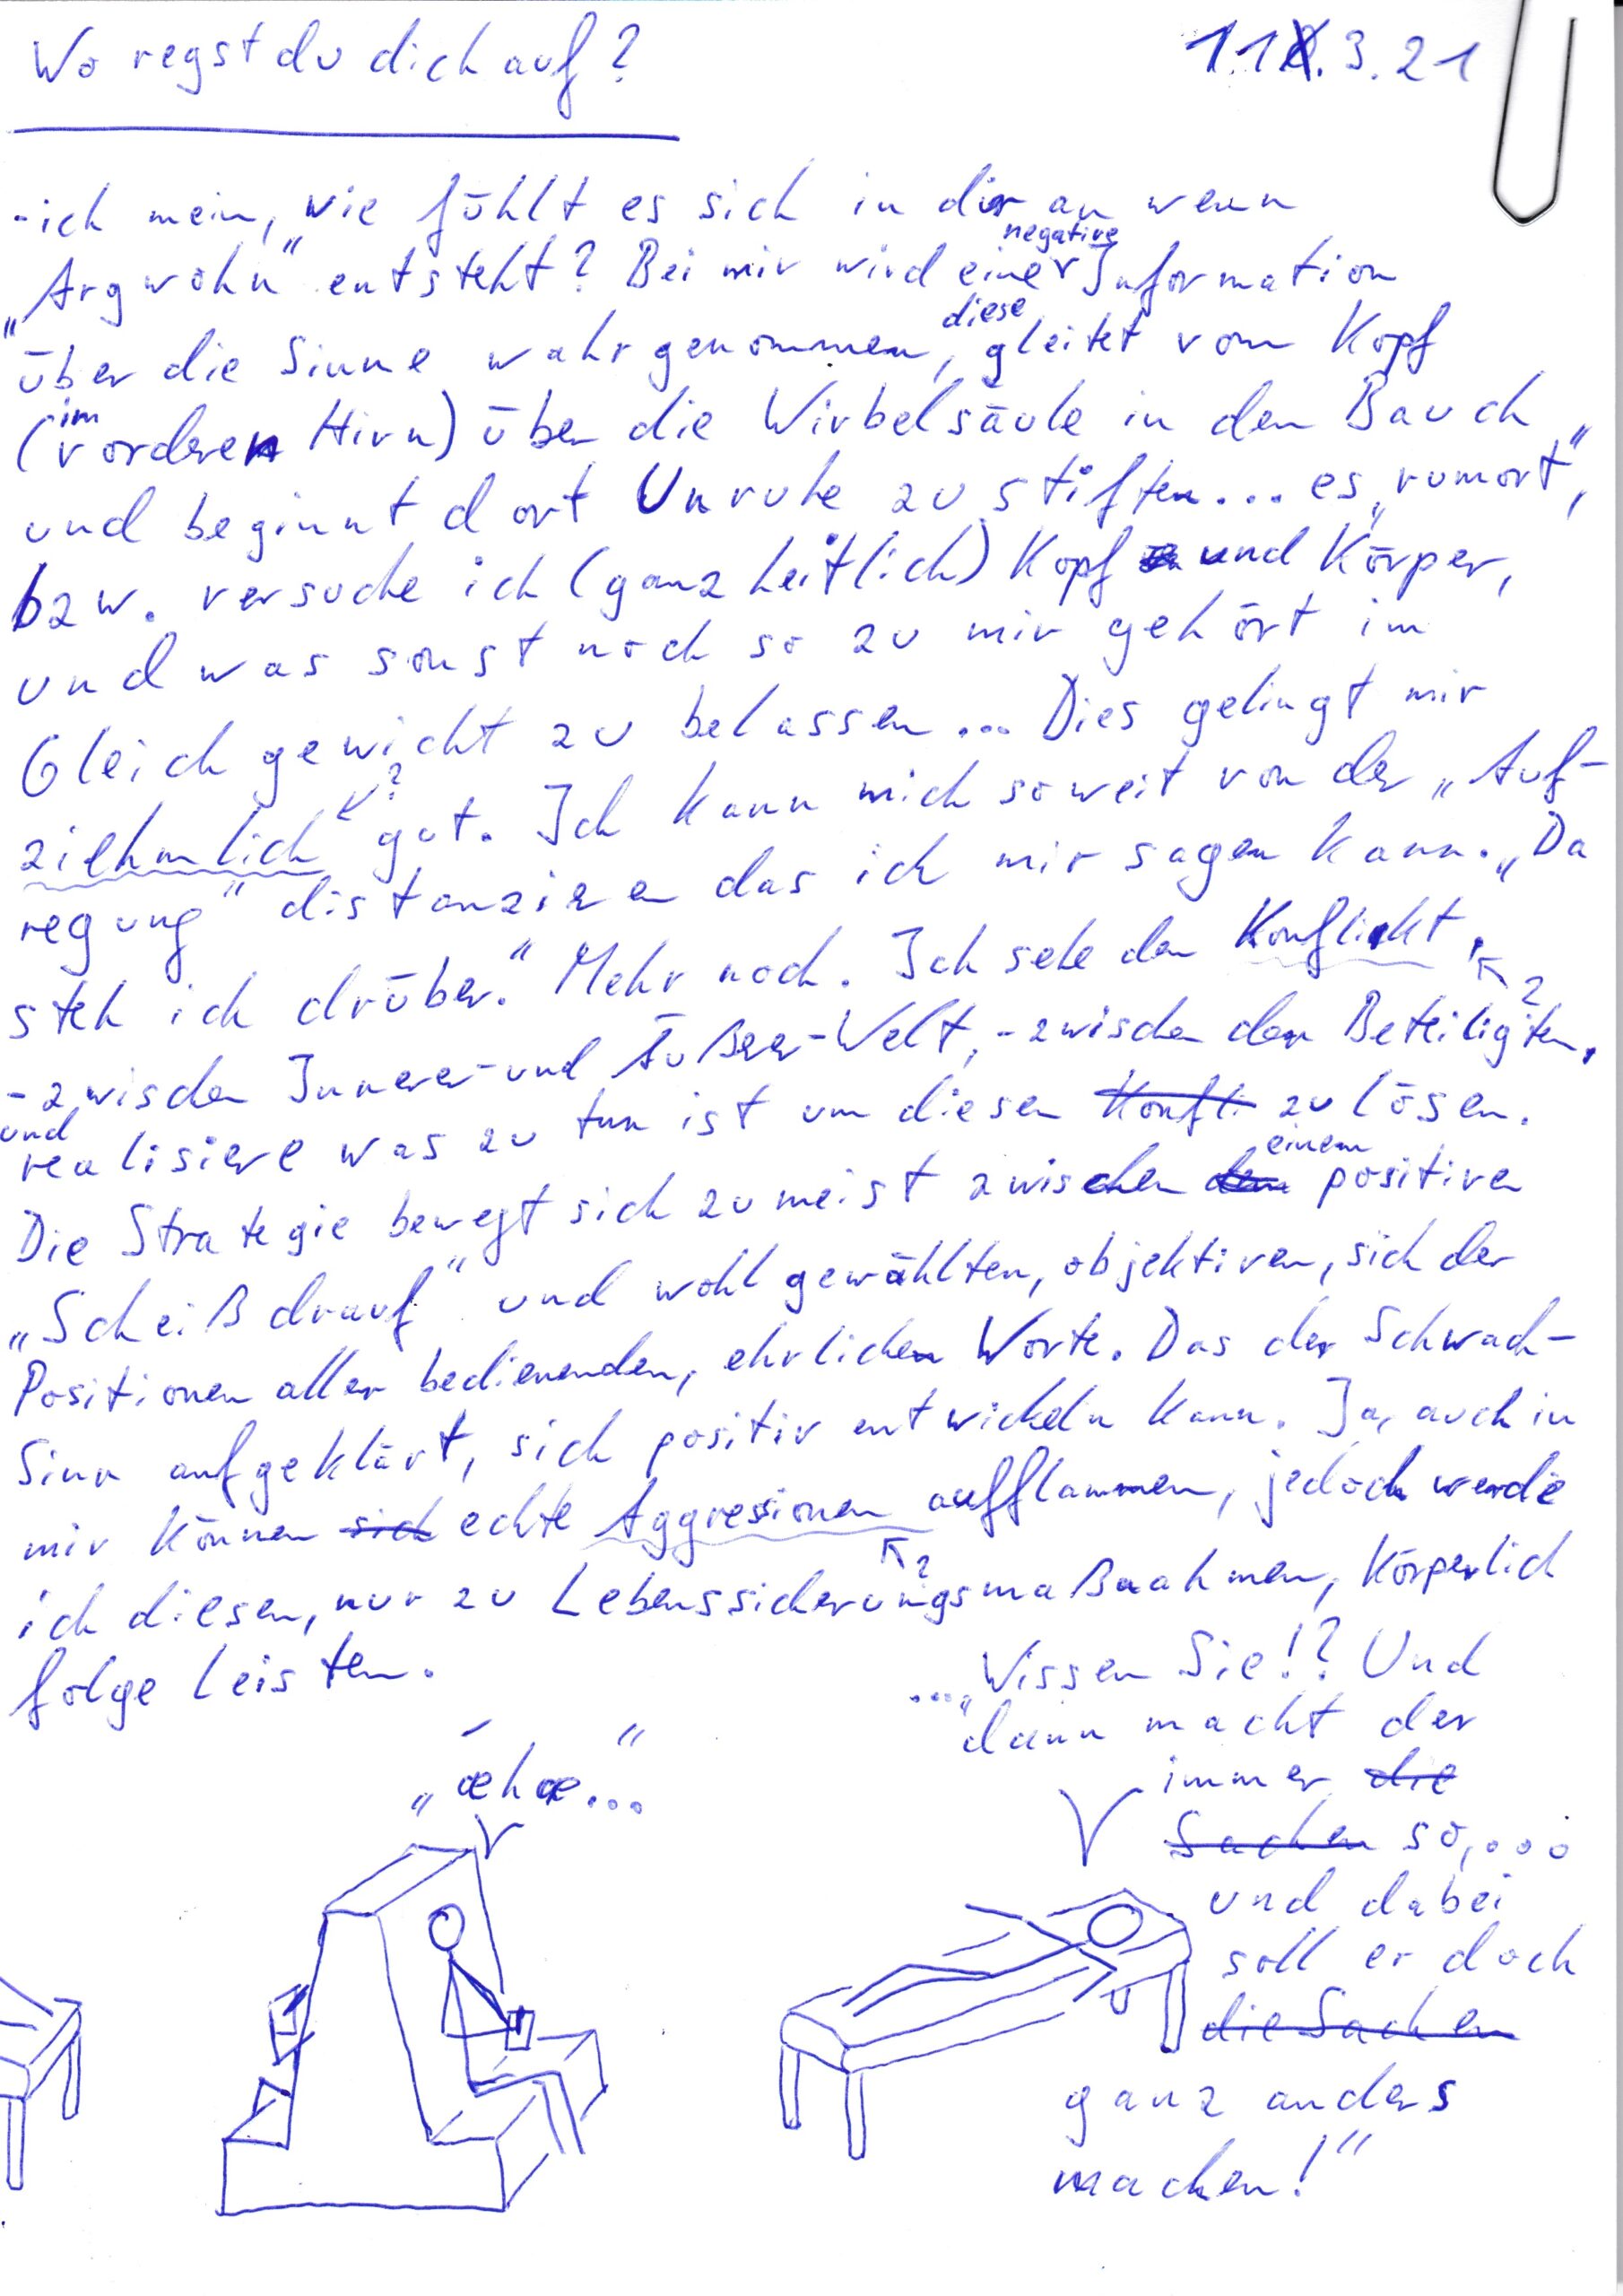 Wo regst du dich auf?
11.3.21
- ich mein, wie fühlt es sich in dir an wenn
„Argwohn" entsteht? Bei mir wird eine negative Information
über die Sinne wahrgenommen, diese gleitet vom Kopf
(im vorderen Hirn) über die Wirbelsäule in den Bauch
und beginnt dort Unruhe zu stiften... es „rumort",
bzw. versuche ich (ganzheitlich) Kopf und Körper,
und was sonst noch so zu mir gehört im
Gleichgewicht zu belassen... Dies gelingt mir
ziehmlich ? gut. Ich kann mich soweit von der „Auf-
regung" distanzieren das ich mir sagen kann. „Da
steh ich drüber." Mehr noch. Ich sehe den Konflickt, ?
- zwischen Innerer- und Äußerer-Welt, - zwischen den Beteiligten,
und realisiere was zu tun ist um diesen Konfli zu lösen.
Die Strategie bewegt sich zumeist zwischen einem positiven
„Scheiß drauf" und wohl gewählten, objektiven, sich der
Positionen aller bedienenden, ehrlichen Worte. Das der Schwach-
Sinn aufgeklärt, sich positiv entwickeln kann. Ja, auch in
mir können sich echte Aggressionen aufflammen, jedoch werde
ich diesen, nur zu Lebenssicherungsmaßnahmen, Körperlich ?
folge leisten.
„æhæ..."
..."Wissen Sie!? Und
dann macht der
immer die
Sachen so,...
und dabei
soll er doch
die Sachen
ganz anders
machen!"